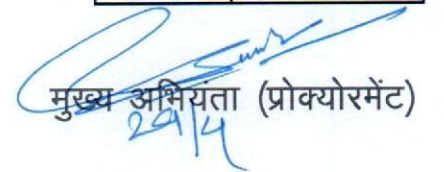 मुख्य अभियंता (प्रोक्योरमेंट)
29/4